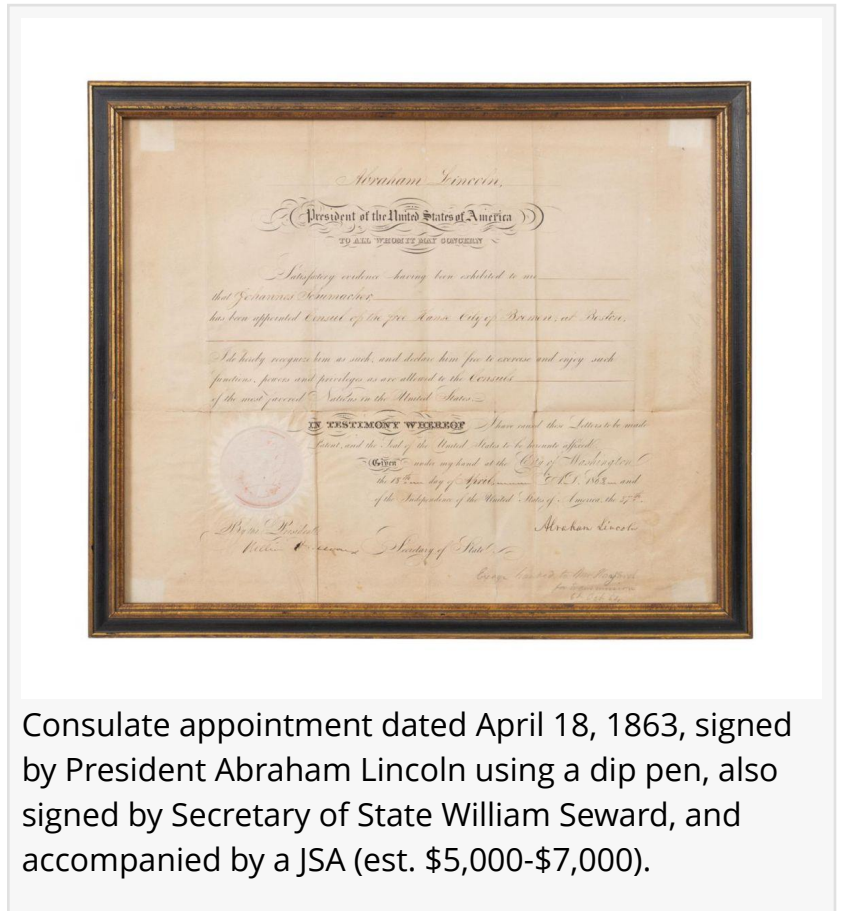 Abraham Lincoln,
President of the United States of America
TO ALL WHOM IT MAY CONCERN
Satisfactory evidence having been exhibited to me
that Johannes Schumacher
has been appointed Consul of the free Hanse City of Bremen, at Boston,
I do hereby recognize him as such, and declare him free to exercise and enjoy such
functions, powers and privileges as are allowed to the Consuls
of the most favored Nations in the United States.
IN TESTIMONY WHEREOF I have caused these Letters to be made
Patent, and the Seal of the United States to be hereunto affixed.
Given under my hand at the City of Washington
the 18th day of April, A.D. 1863 and
of the Independence of the United States of America, the 87th.
Abraham Lincoln
By the President
William Secretary of State
Consulate appointment dated April 18, 1863, signed
by President Abraham Lincoln using a dip pen, also
signed by Secretary of State William Seward, and
accompanied by a JSA (est. $5,000-$7,000).